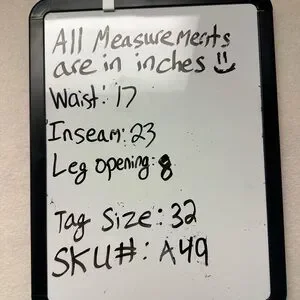 All Measurements
are in inches
Waist: 17
Inseam: 23
Leg opening: 8
Tag Size: 32
SKU#: A49